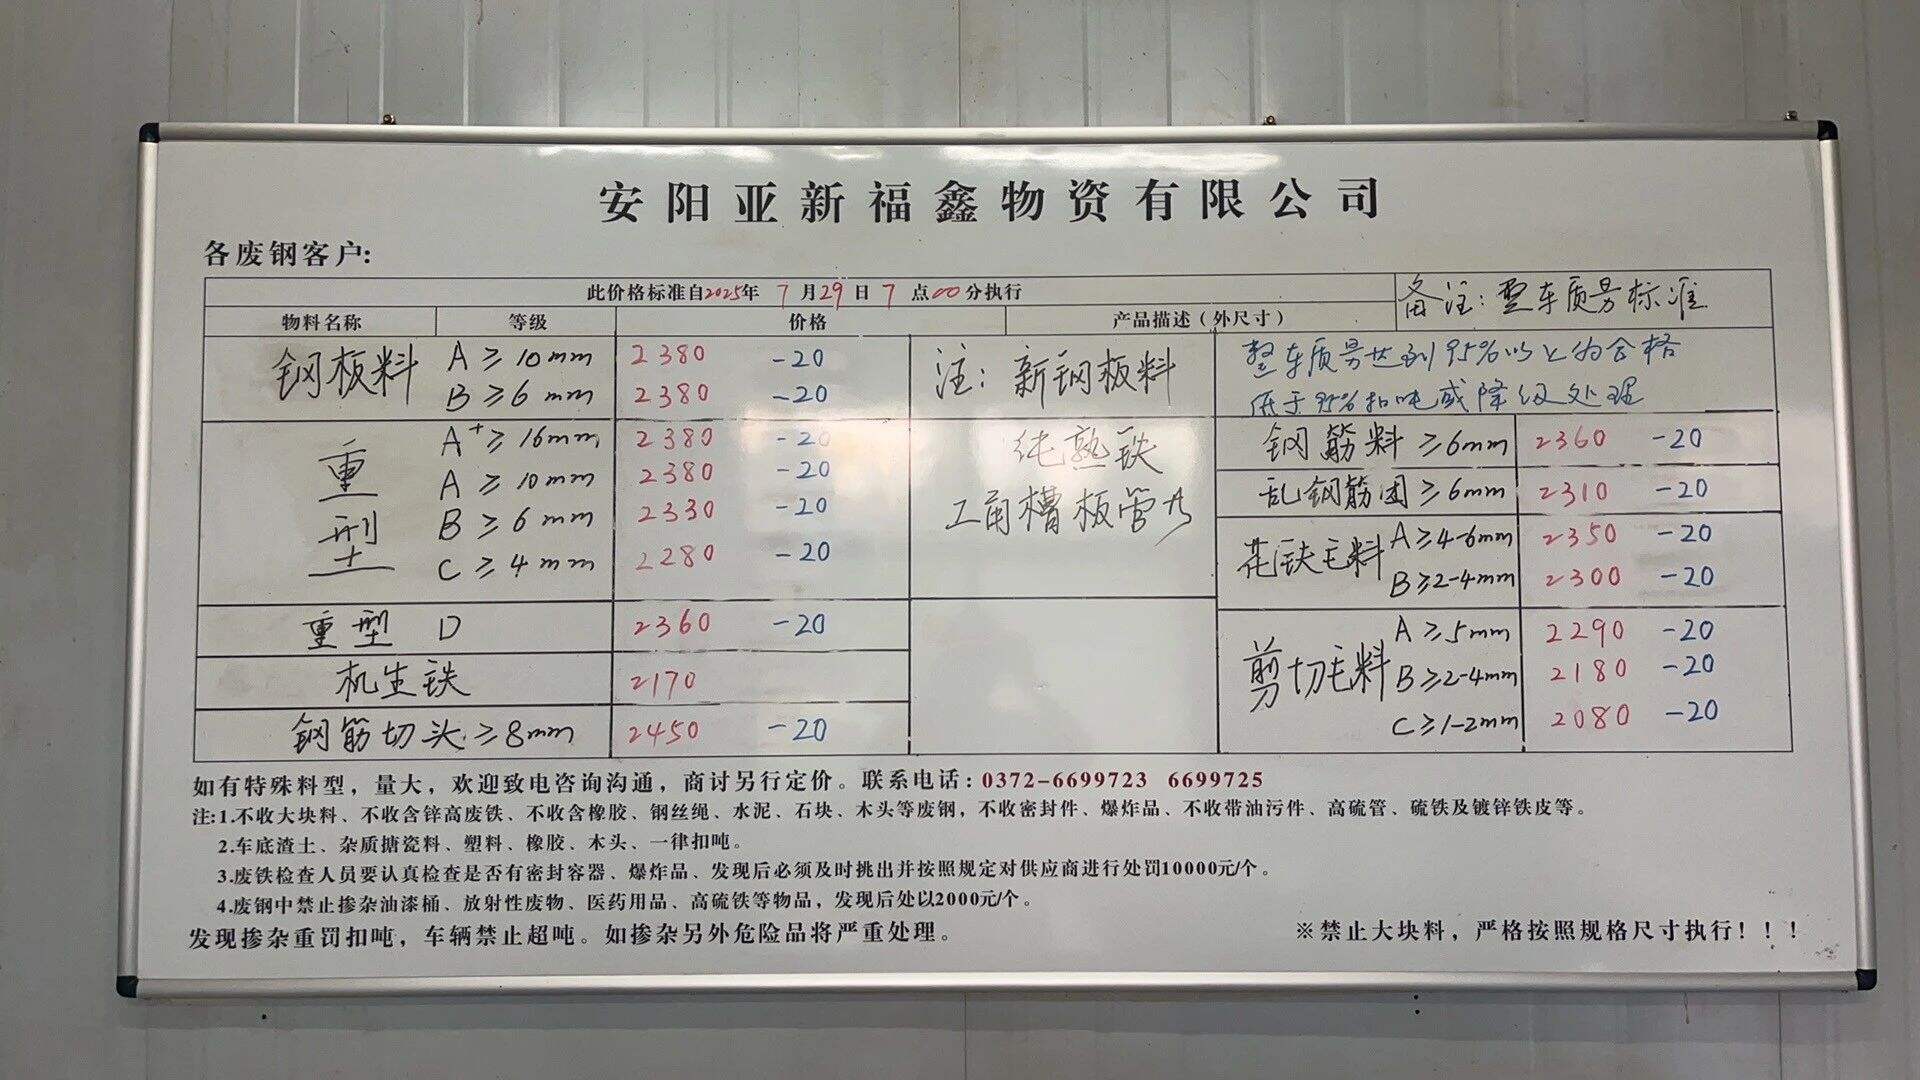 安阳亚新福鑫物资有限公司
各废钢客户:
此价格标准自2025年 7月29日7点00分执行
备注:整车质另标准
物料名称 等级 价格 产品描述(外尺寸)
钢板料 A≥10mm 2380 -20
B≥6mm 2380 -20
注:新钢板料
整车质另达到95%以上为合格
低于95%扣吨或降级处理
重型 A+≥16mm 2380 -20
A≥10mm 2380 -20
B≥6mm 2330 -20
C≥4mm 2280 -20
纯熟铁
工角槽板管
钢筋料≥6mm 2360 -20
乱钢筋团≥6mm 2310 -20
花铁毛料 A≥4-6mm 2350 -20
B≥2-4mm 2300 -20
重型 D 2360 -20
机生铁 2170
钢筋切头≥8mm 2450 -20
剪切毛料 A≥5mm 2290 -20
B≥2-4mm 2180 -20
C≥1-2mm 2080 -20
如有特殊料型,量大,欢迎致电咨询沟通,商讨另行定价。联系电话:0372-6699723 6699725
注:1.不收大块料、不收含锌高废铁、不收含橡胶、钢丝绳、水泥、石块、木头等废钢,不收密封件、爆炸品、不收带油污件、高硫管、硫铁及镀锌铁皮等。
2.车底渣土、杂质搪瓷料、塑料、橡胶、木头、一律扣吨。
3.废铁检查人员要认真检查是否有密封容器、爆炸品、发现后必须及时挑出并按照规定对供应商进行处罚10000元/个。
4.废钢中禁止掺杂油漆桶、放射性废物、医药用品、高硫铁等物品,发现后处以2000元/个。
发现掺杂重罚扣吨,车辆禁止超吨。如掺杂另外危险品将严重处理。
※禁止大块料,严格按照规格尺寸执行!!!